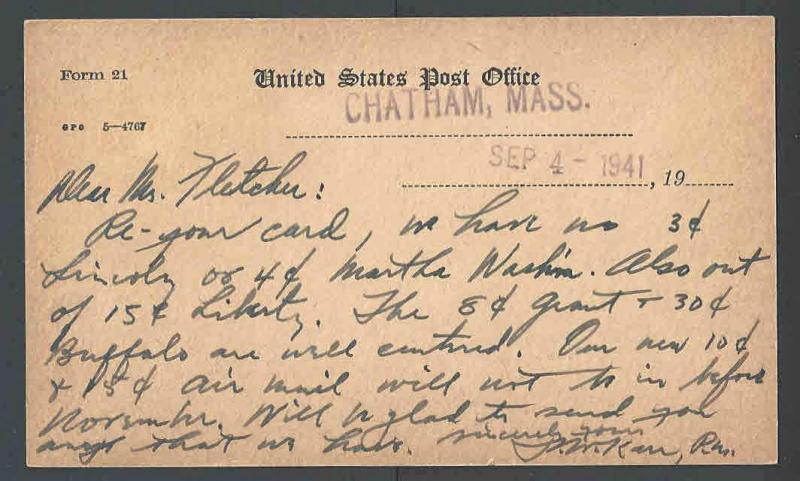 Form 21
United States Post Office
CHATHAM, MASS.
GPO 5—4767
SEP 4 - 1941, 19
Dear Mr. Fletcher:
Re-your card, we have no 3¢
Lincoln or 4¢ Martha Wash'n. Also out
of 15¢ Liberty. The 8¢ Grant + 30¢
Buffalo are well centered. Our new 10¢
+ 15¢ air mail will not be in before
November. Will be glad to send you
any that we have. Sincerely yours